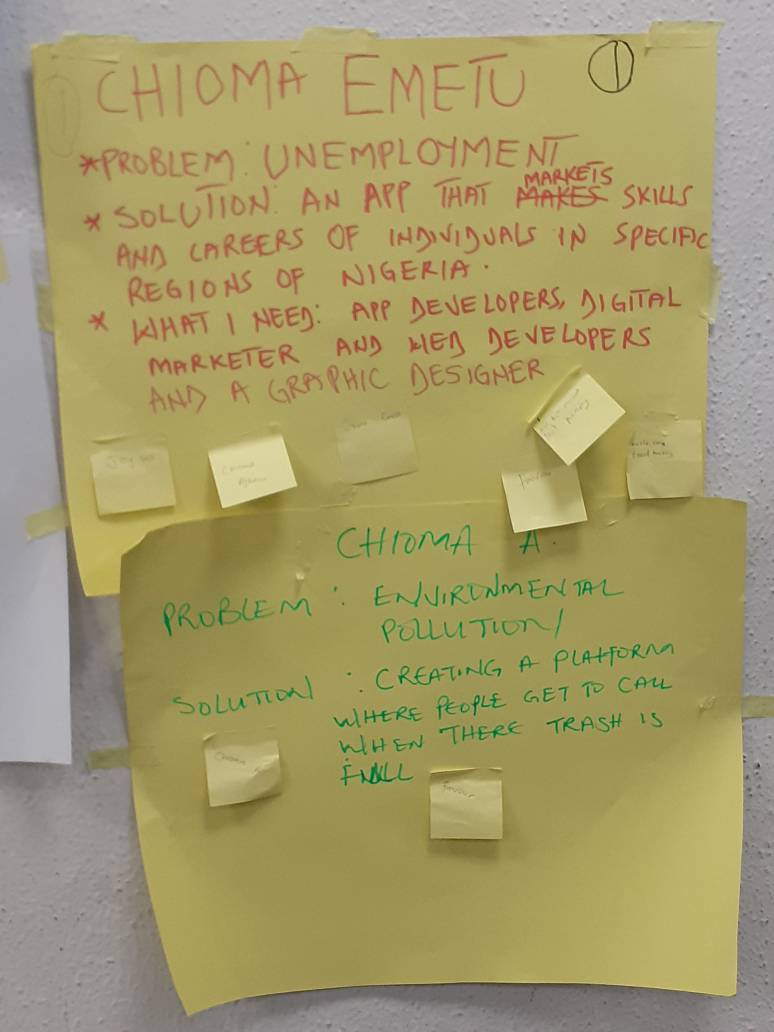 CHIOMA EMETU
1
*PROBLEM: UNEMPLOYMENT
MARKETS
* SOLUTION: AN APP THAT MAKES SKILLS
AND CAREERS OF INDIVIDUALS IN SPECIFIC
REGIONS OF NIGERIA.
* WHAT I NEED: APP DEVELOPERS, DIGITAL
MARKETER AND WEB DEVELOPERS
AND A GRAPHIC DESIGNER
CHIOMA A.
PROBLEM : ENVIRONMENTAL
POLLUTION/
SOLUTION : CREATING A PLATFORM
WHERE PEOPLE GET TO CALL
WHEN THERE TRASH IS
FULL
Favour